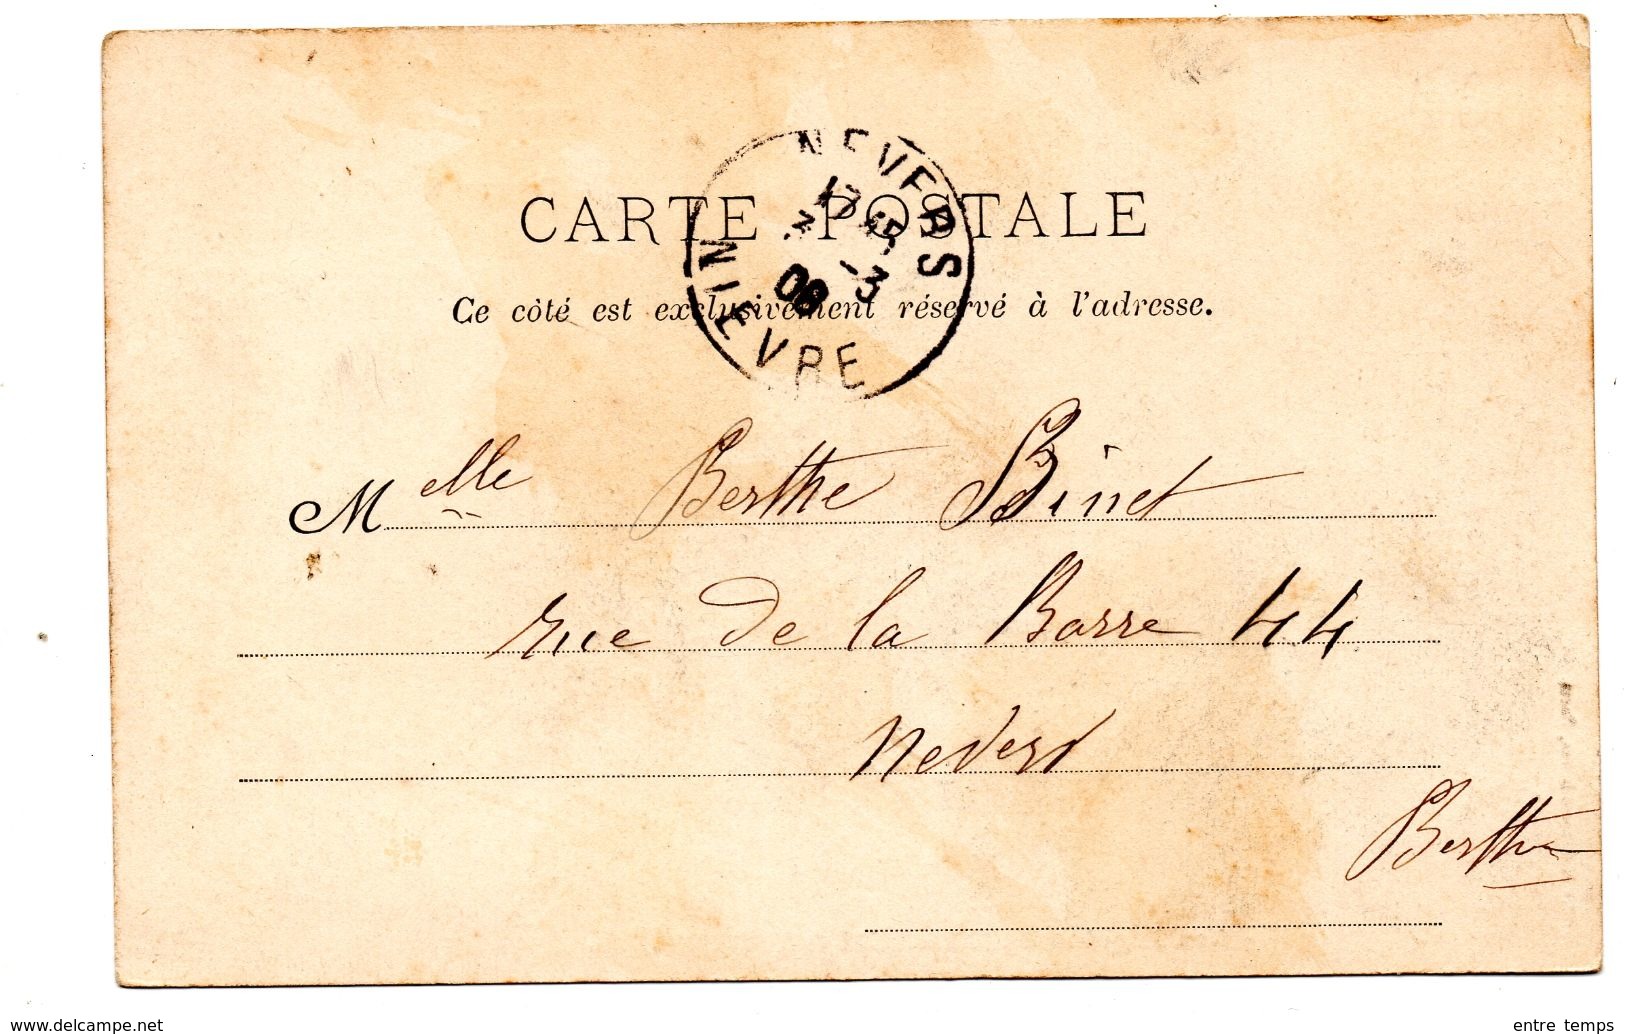 NEVERS
CARTE POSTALE
17 15
-3
08
NIEVRE
Ce côté est exclusivement réservé à l'adresse.
Melle Berthe Binet
rue de la Barre 44
Nevers
Berthe
www.delcampe.net
entre temps